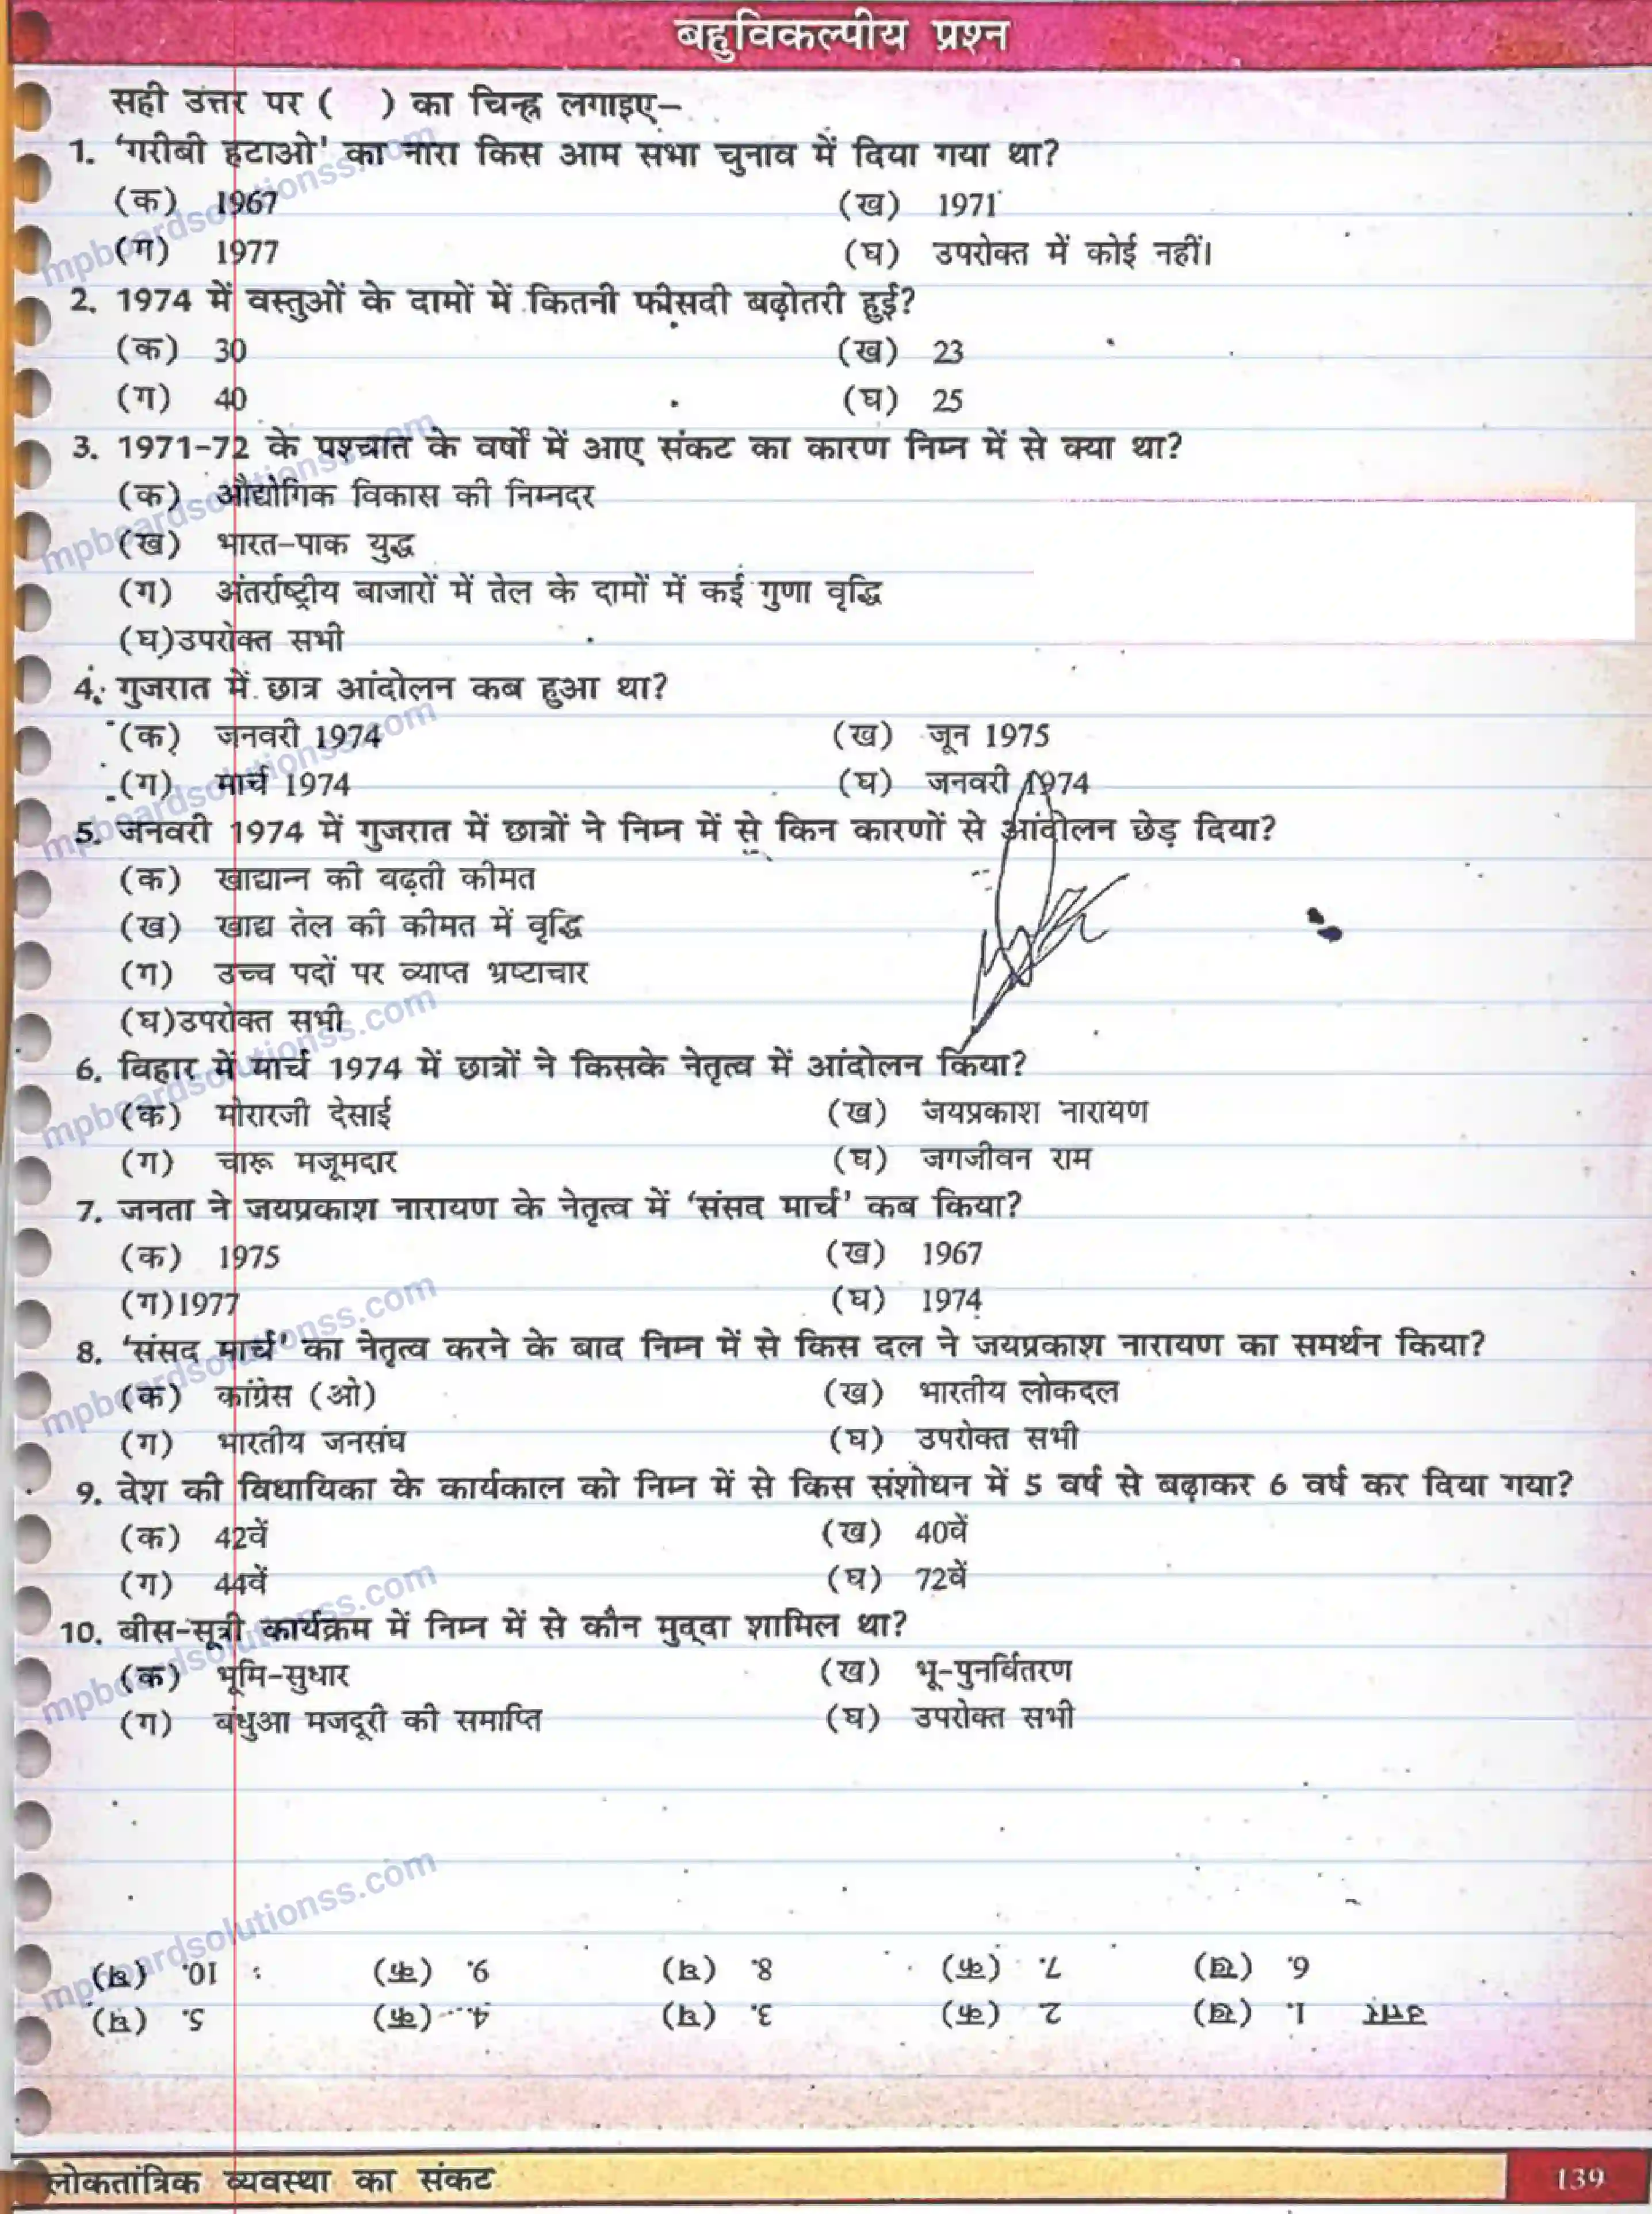 बहुविकल्पीय प्रश्न
सही उत्तर पर (   ) का चिन्ह लगाइए–
1. 'गरीबी हटाओ' का नारा किस आम सभा चुनाव में दिया गया था?
(क) 1967 (ख) 1971
(ग) 1977 (घ) उपरोक्त में कोई नहीं।
2. 1974 में वस्तुओं के दामों में कितनी फीसदी बढ़ोतरी हुई?
(क) 30 (ख) 23
(ग) 40 (घ) 25
3. 1971-72 के पश्चात के वर्षों में आए संकट का कारण निम्न में से क्या था?
(क) औद्योगिक विकास की निम्नदर
(ख) भारत-पाक युद्ध
(ग) अंतर्राष्ट्रीय बाजारों में तेल के दामों में कई गुणा वृद्धि
(घ)उपरोक्त सभी
4. गुजरात में छात्र आंदोलन कब हुआ था?
(क) जनवरी 1974 (ख) जून 1975
(ग) मार्च 1974 (घ) जनवरी 1974
5. जनवरी 1974 में गुजरात में छात्रों ने निम्न में से किन कारणों से आंदोलन छेड़ दिया?
(क) खाद्यान्न की बढ़ती कीमत
(ख) खाद्य तेल की कीमत में वृद्धि
(ग) उच्च पदों पर व्याप्त भ्रष्टाचार
(घ)उपरोक्त सभी
6. विहार में मार्च 1974 में छात्रों ने किसके नेतृत्व में आंदोलन किया?
(क) मोरारजी देसाई (ख) जयप्रकाश नारायण
(ग) चारू मजूमदार (घ) जगजीवन राम
7. जनता ने जयप्रकाश नारायण के नेतृत्व में 'संसद मार्च' कब किया?
(क) 1975 (ख) 1967
(ग)1977 (घ) 1974
8. 'संसद मार्च' का नेतृत्व करने के बाद निम्न में से किस दल ने जयप्रकाश नारायण का समर्थन किया?
(क) कांग्रेस (ओ) (ख) भारतीय लोकदल
(ग) भारतीय जनसंघ (घ) उपरोक्त सभी
9. देश की विधायिका के कार्यकाल को निम्न में से किस संशोधन में 5 वर्ष से बढ़ाकर 6 वर्ष कर दिया गया?
(क) 42वें (ख) 40वें
(ग) 44वें (घ) 72वें
10. बीस-सूत्री कार्यक्रम में निम्न में से कौन मुद्दा शामिल था?
(क) भूमि-सुधार (ख) भू-पुनर्वितरण
(ग) बंधुआ मजदूरी की समाप्ति (घ) उपरोक्त सभी
उत्तर 1. (ख) 2 (क) 3. (घ) 4... (क) 5. (घ)
6. (ख) 7. (क) 8. (घ) 9. (क) 10. (घ)
लोकतांत्रिक व्यवस्था का संकट 139
mpboardsolutionss.com
mpboardsolutionss.com
mpboardsolutionss.com
mpboardsolutionss.com
mpboardsolutionss.com
mpboardsolutionss.com
mpboardsolutionss.com